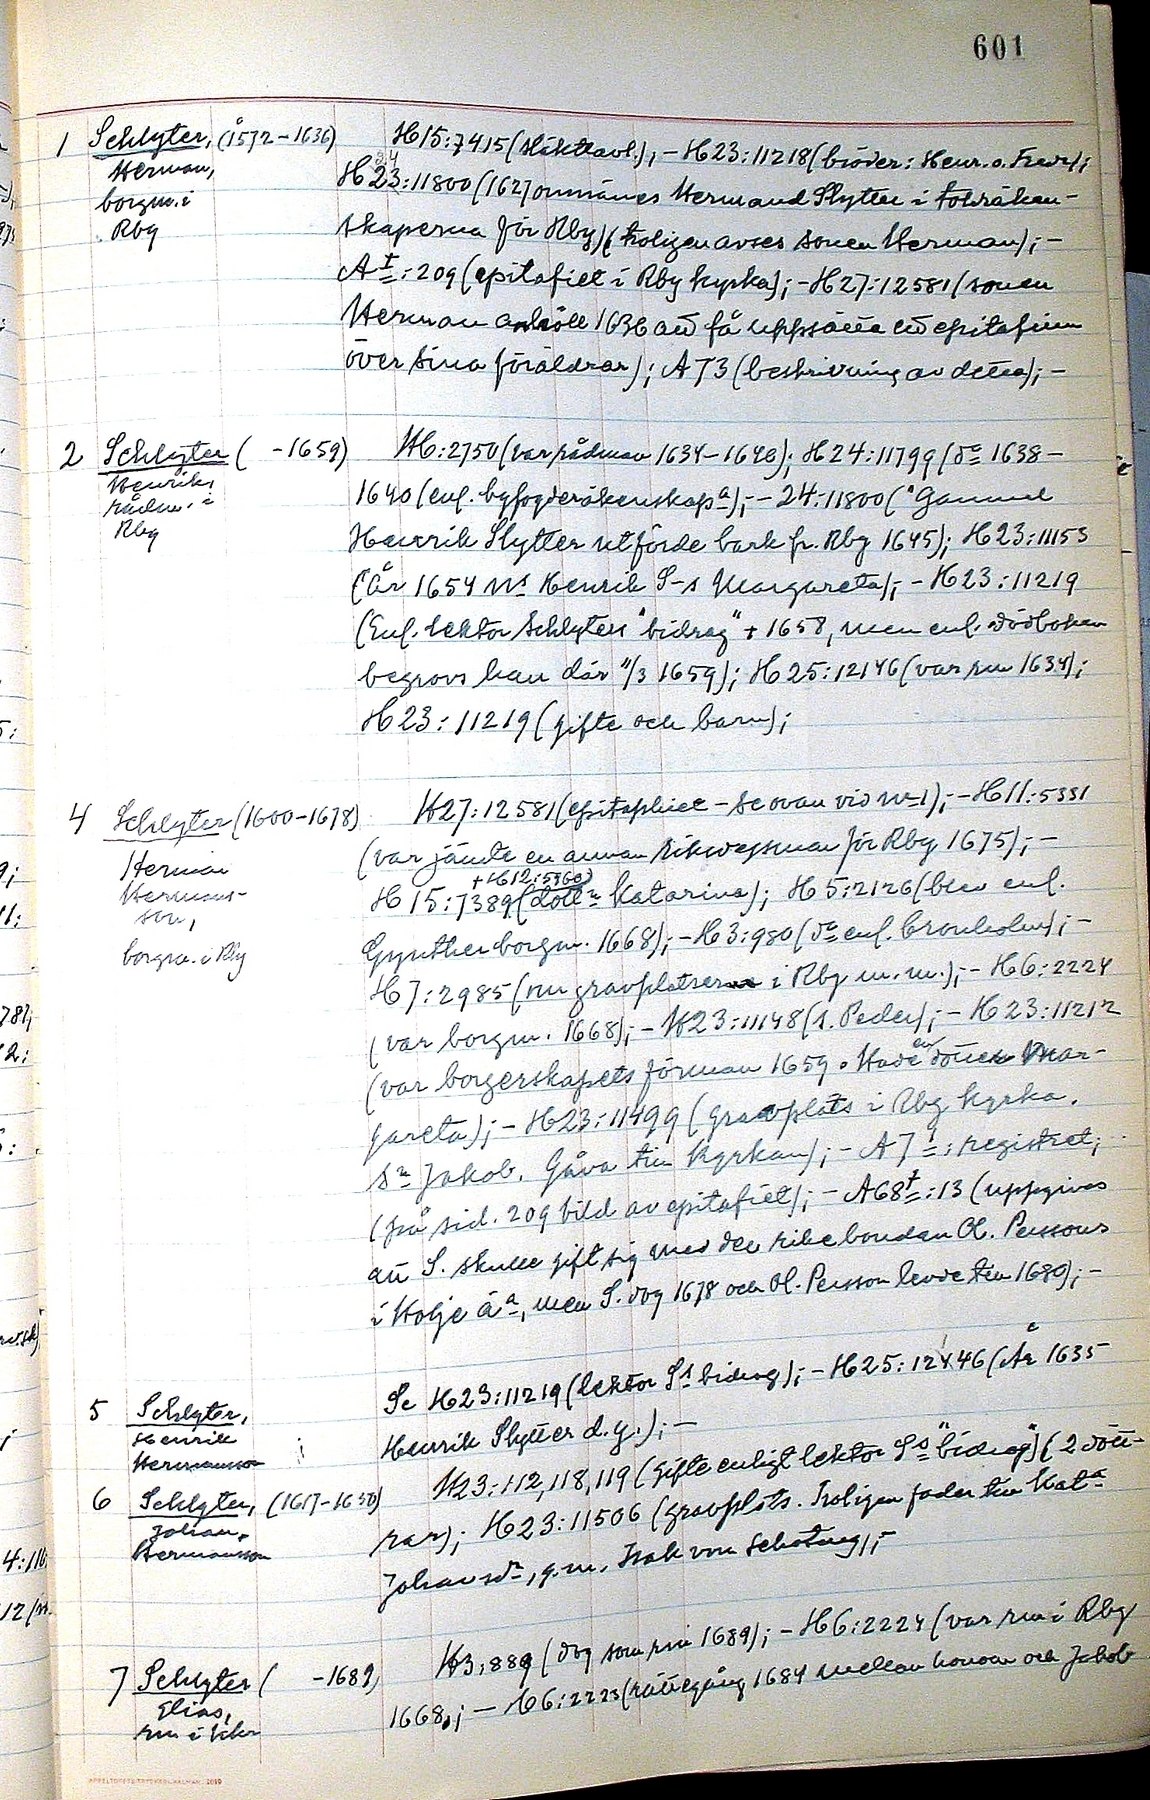 601
1 Schlyter, (1572-1636) H15:7415 (släkttavl.); - H23:11218 (bröder: Henr. o. Fredr);
Herman, H23:11800 (1627 omnämnes Hermand Slytter i tolräken-
borgm. i skaperna för Rby) (troligen avses sonen Herman); -
Rby A I:209 (epitafiet i Rby kyrka); - H27:12581 (sonen
Herman anhöll 1636 att få uppsätta ett epitafium
över sina föräldrar); A73 (beskrivning av detta); -
2 Schlyter ( -1659) H6:2750 (var rådman 1634-1648); H24:11799 (do 1638-
Henrik, 1640 (enl. byfogderäkenskap); - 24:11800 ("Gammel
rådm. i Henrik Slytter utförde bark fr. Rby 1645); H23:11153
Rby (år 1654 Henrik S-s Margareta); - H23:11219
(Enl. lektor Schlyters "bidrag" + 1658, men enl. dödboken
begrovs han där 11/3 1659); H25:12146 (var rm 1634);
H23:11219 (gifte och barn);
4 Schlyter (1600-1678) H27:12581 (epitaphiet - se ovan vid nr 1); - H11:5331
Herman (var jämte en annan riksdagsman för Rby 1675); -
+ H12:5960
Hermans- H15:7389 (dottr Katarina); H5:2126 (blev enl.
son,
borgm. i Rby Gynther borgm. 1668); - H3:980 (do enl. Cronholm); -
H7:2985 (om gravplatser i Rby m.m.); - H6:2224
(var borgm. 1668); - H23:11148 (s. Peder); - H23:11212
(var borgerskapets förman 1659. Hade en dotter Mar-
gareta); - H23:11499 (gravplats i Rby kyrka.
Sn Jakob. Gåva till kyrkan); - A7: registret;
(på sid. 209 bild av epitafiet); - A68:13 (uppgives
att S. skulle gift sig med den rike bondan Ol. Perssons
i Holje, men S. dog 1678 och Ol. Persson levde till 1680); -
5 Schlyter, Se H23:11219 (lektor Ss bidrag); - H25:12446 (År 1635
Henrik Henrik Slytter d.y.); -
Hermansson
6 Schlyter, (1617-1650) H23:112,118,119 (gifte enligt lektor Ss "bidrag") (2 dött-
Johan, rar); H23:11506 (gravplats. Troligen fader till Kat
Hermansson Johansdr, g.m. Isak von Schoting); -
7 Schlyter ( -1689) H3:889 (dog som rm 1689); - H6:2224 (var rm i Rby
Elias, 1668); - H6:2223 (rättegång 1684 mellan honom och Jakob
rm i Kkr